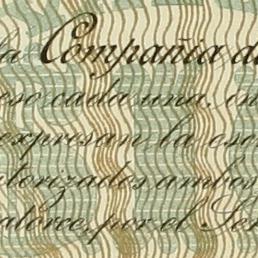 la Compañia de
eso cada una, en
expresan la es
torizados ambos
catorce, por el Se